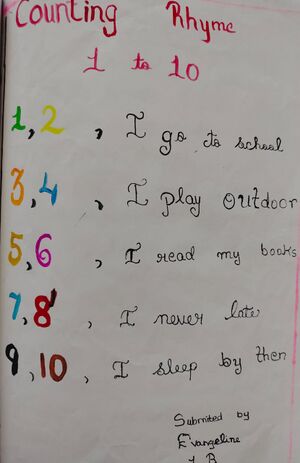 Counting Rhyme
1 to 10
1, 2 , I go to school
3, 4 , I play outdoor
5, 6 , I read my books
7, 8 , I never late
9, 10 , I sleep by then
Submited by
Evangeline
1 B